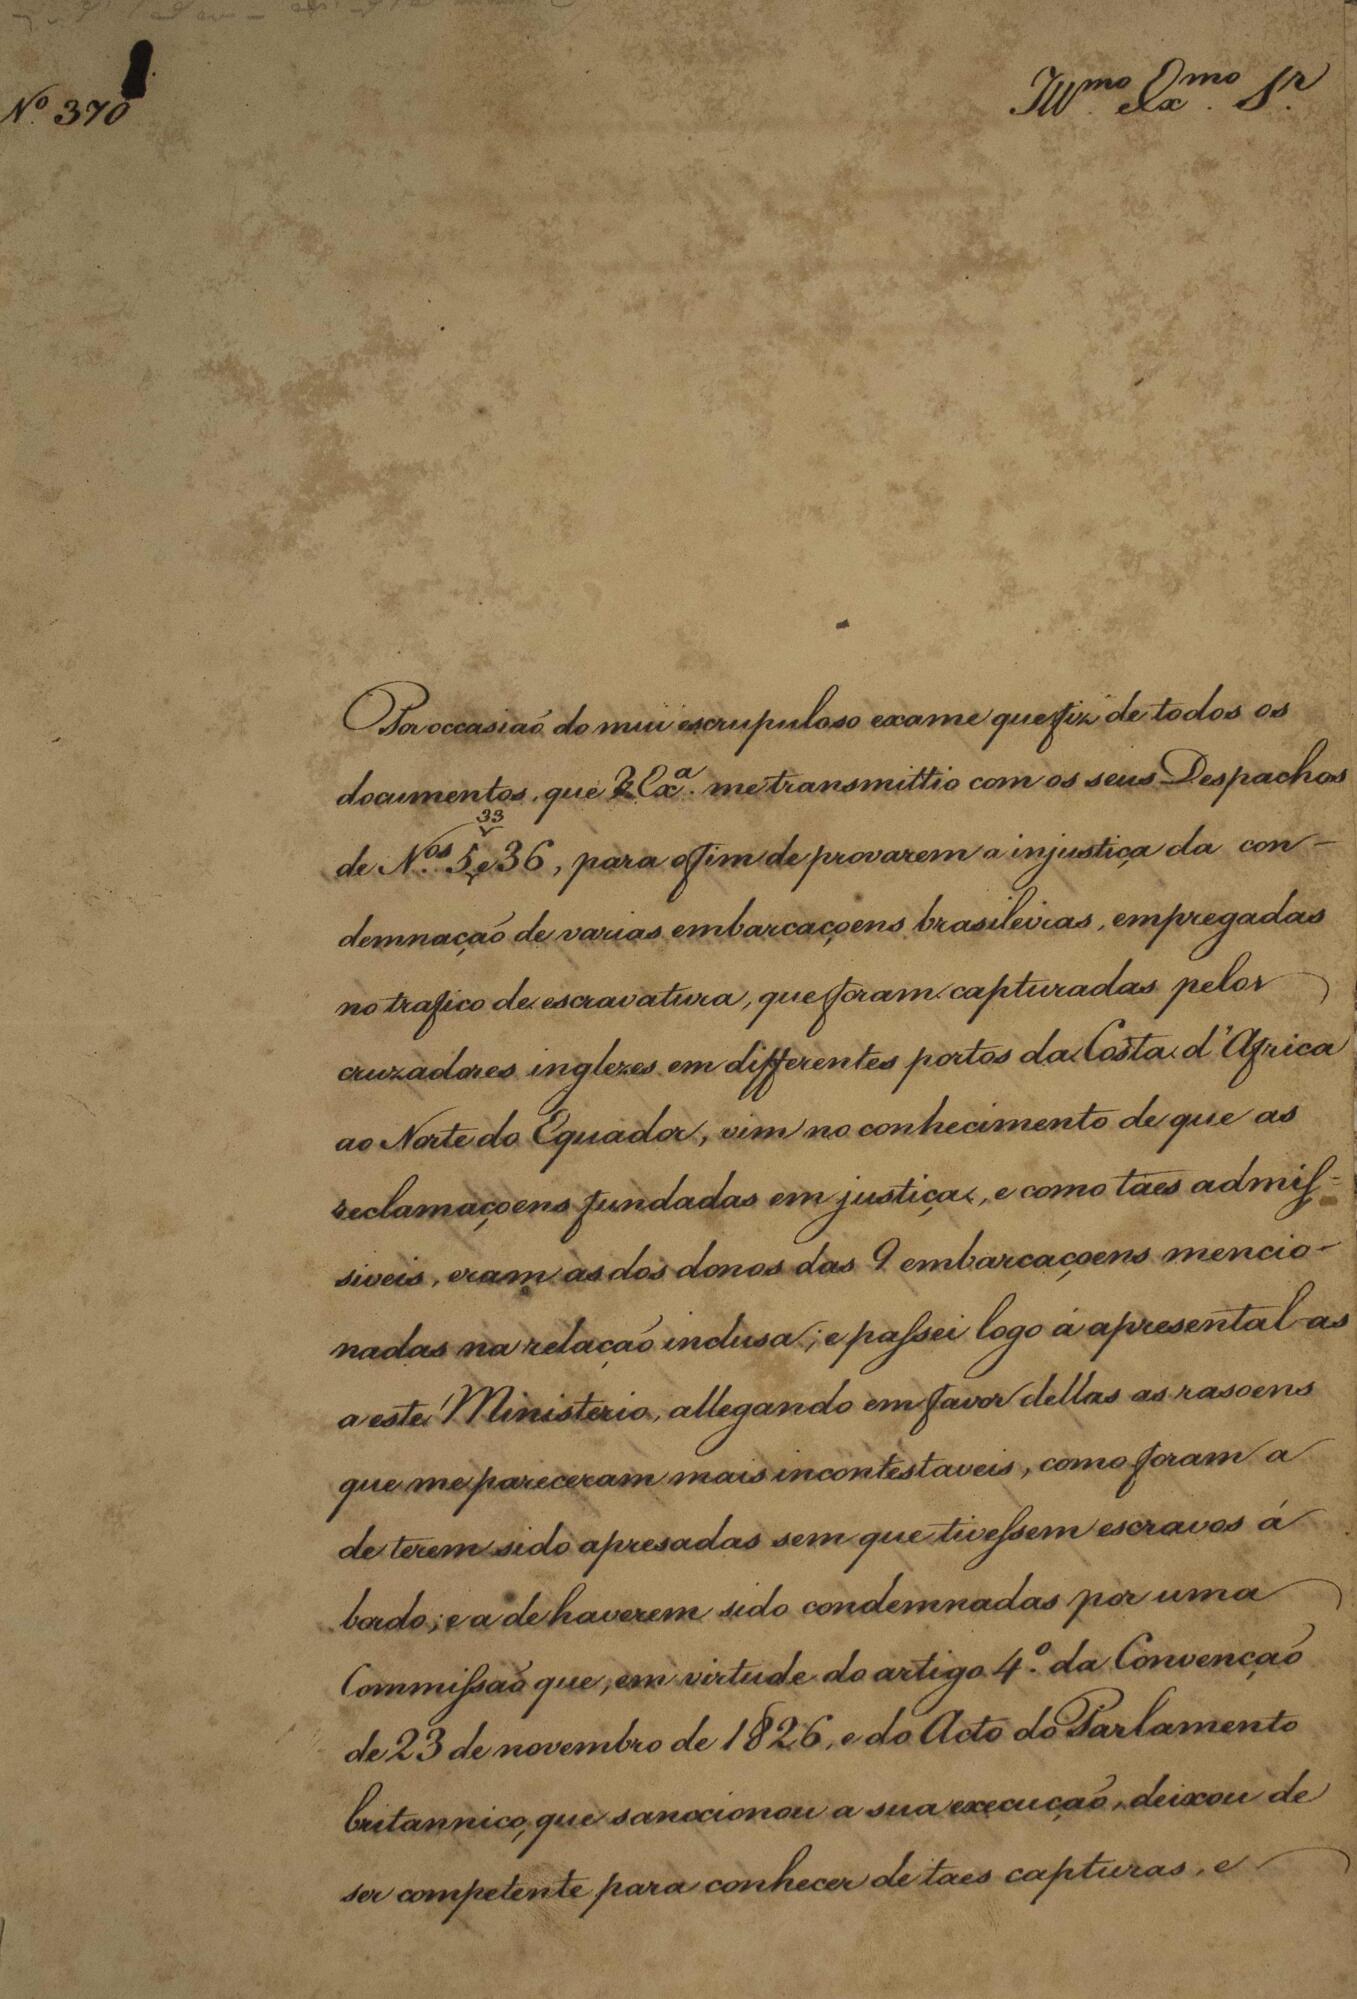 Nº 370
Illmo. Exmo. Sr.
Por occasiaõ do mui escrupuloso exame que fiz de todos os
documentos, que V. Exa. me transmittio com os seus Despachos
33
de Nos. 5, e 36, para o fim de provarem a injustiça da con-
demnaçaõ de varias embarcaçoens brasileiras, empregadas
no trafico de escravatura, que foram capturadas pelos
cruzadores inglezes em differentes portos da Costa d'Africa
ao Norte do Equador, vim no conhecimento de que as
reclamaçoens fundadas em justiça, e como taes admis-
siveis, eram as dos donos das 9 embarcaçoens mencio-
nadas na relaçaõ inclusa; e passei logo á apresental-as
a este Ministerio, allegando em favor dellas as rasoens
que me pareceram mais incontestaveis, como foram a
de terem sido apresadas sem que tivessem escravos á
bordo; e a de haverem sido condemnadas por uma
Commissaõ que, em virtude do artigo 4.º da Convençaõ
de 23 de novembro de 1826, e do Acto do Parlamento
britannico, que sanccionou a sua execuçaõ, deixou de
ser competente para conhecer de taes capturas, e